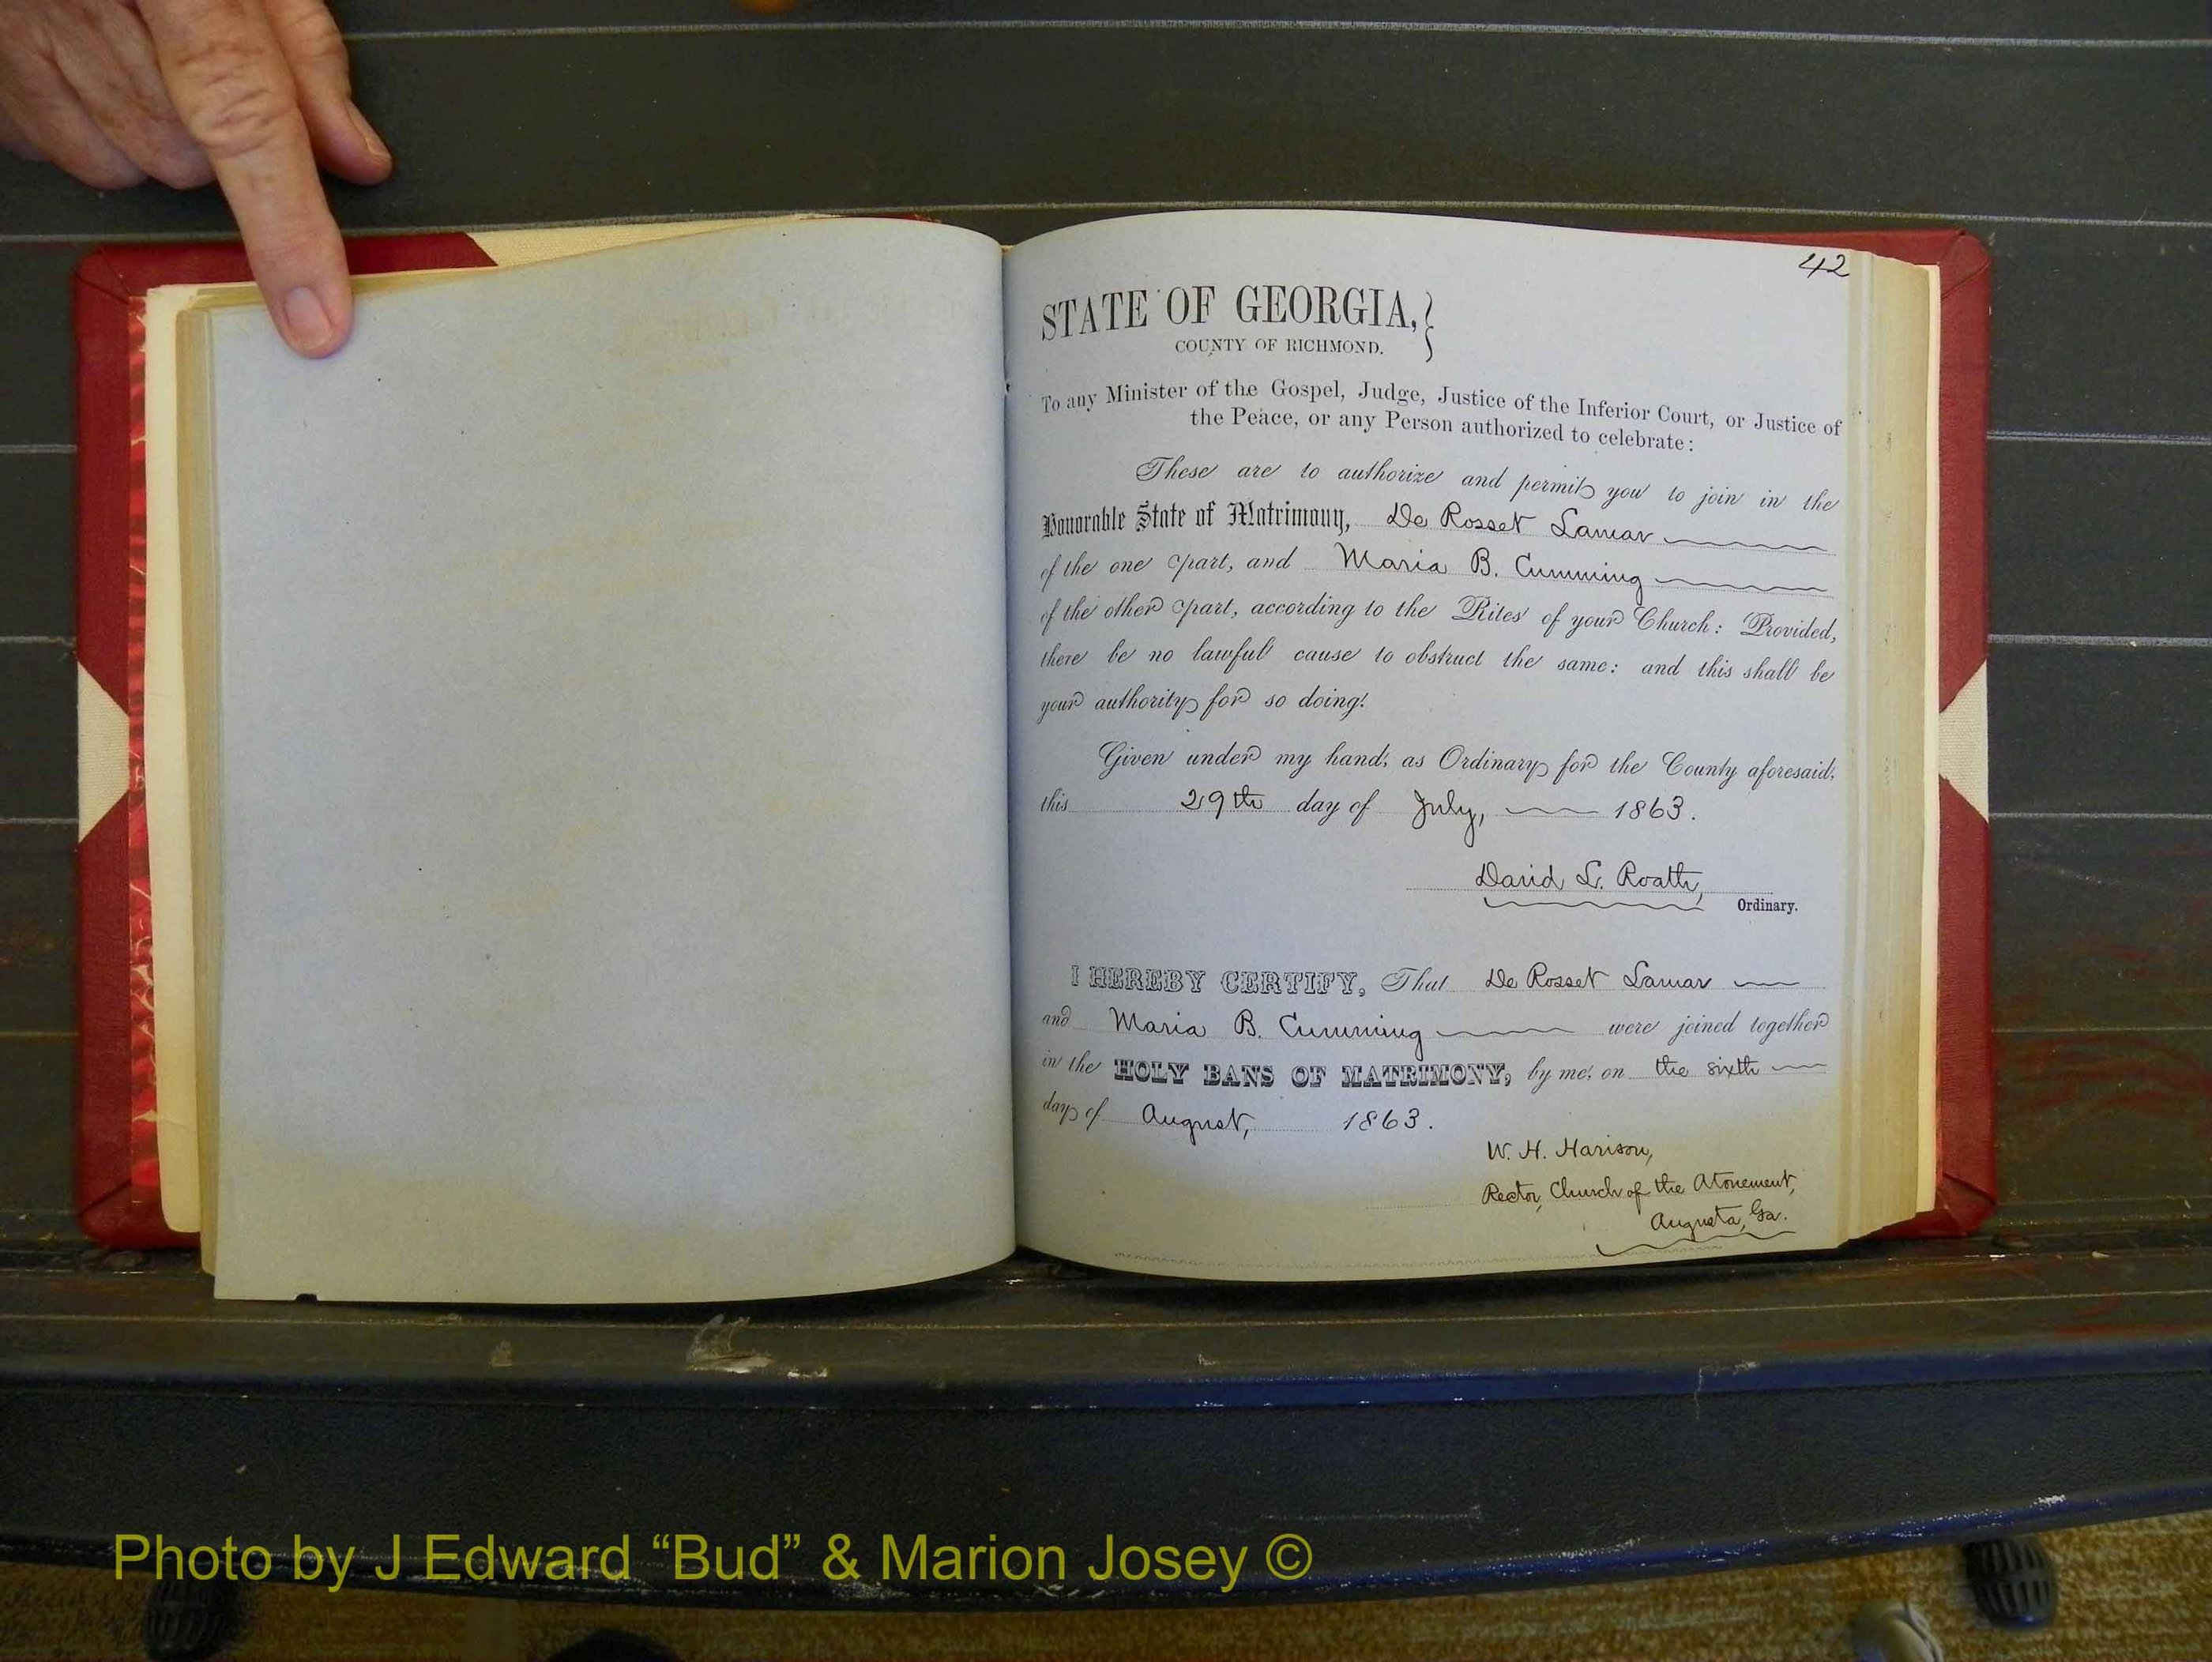 42
STATE OF GEORGIA,
COUNTY OF RICHMOND.
To any Minister of the Gospel, Judge, Justice of the Inferior Court, or Justice of
the Peace, or any Person authorized to celebrate:
These are to authorize and permit you to join in the
Honorable State of Matrimony, De Rosset Lamar
of the one part, and Maria B. Cumming
of the other part, according to the Rites of your Church: Provided,
there be no lawful cause to obstruct the same: and this shall be
your authority for so doing.
Given under my hand, as Ordinary for the County aforesaid,
this 29th day of July, 1863.
David L. Roath,
Ordinary.
I HEREBY CERTIFY, That De Rosset Lamar
and Maria B. Cumming were joined together
in the HOLY BANS OF MATRIMONY, by me, on the sixth
day of August, 1863.
W. H. Harison,
Rector, Church of the Atonement,
Augusta, Ga.
Photo by J Edward “Bud” & Marion Josey ©